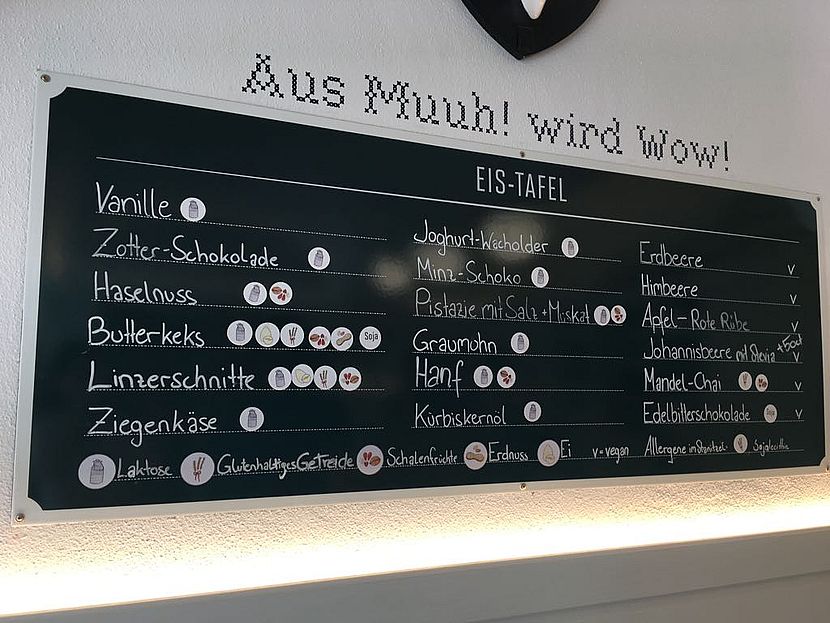 Aus Muuh! wird Wow!
EIS-TAFEL
Vanille
Zotter-Schokolade
Haselnuss
Butterkeks Soja
Linzerschnitte
Ziegenkäse
Joghurt-Wacholder
Minz-Schoko
Pistazie mit Salz + Muskat
Graumohn
Hanf
Kürbiskernöl
Erdbeere v
Himbeere v
Apfel-Rote Rübe v
Johannisbeere mit Stevia v
Mandel-Chai v
Edelbitterschokolade Soja v
Laktose Glutenhaltiges Getreide Schalenfrüchte Erdnuss Ei v=vegan Allergene im Stanitzel: